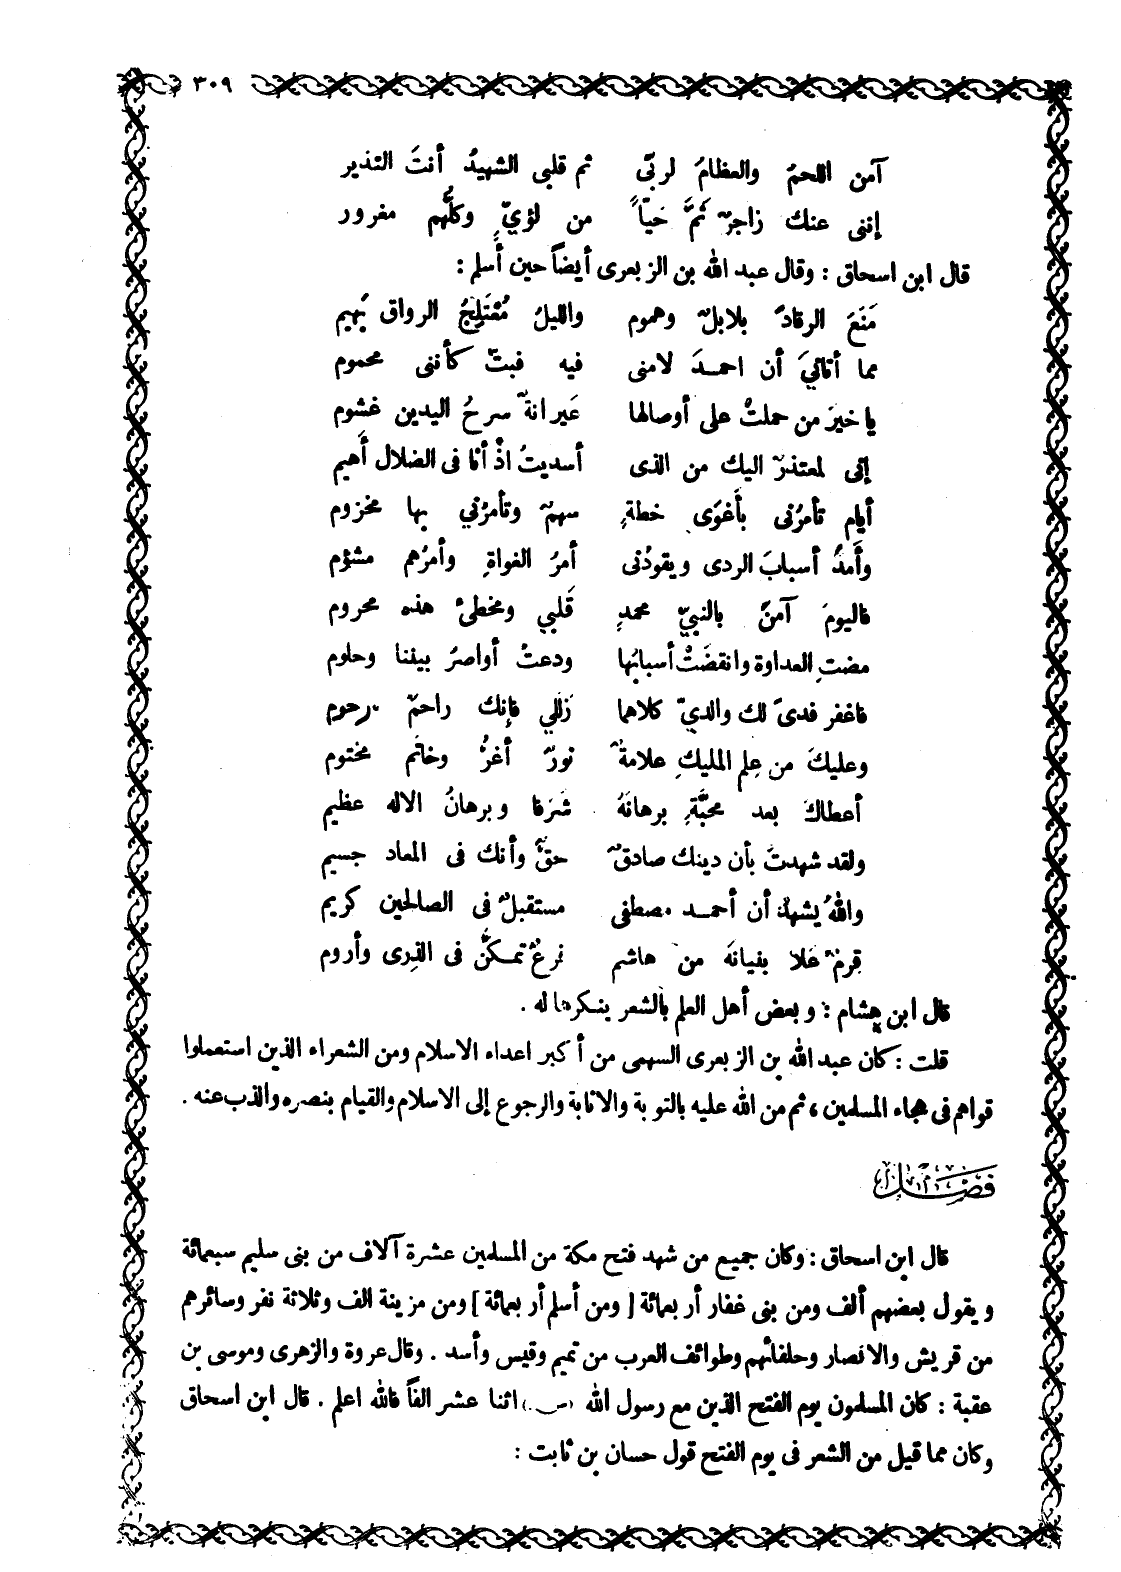 ٣٠٩
آمن اللحمُ والعظامُ لربّى ثم قلبى الشهيدُ أنتَ النذير
إننى عنك زاجرٌ ثَمَّ حَيّاً من لؤيٍّ وكلُّهم مغرور
قال ابن اسحاق : وقال عبد الله بن الزبعرى أيضاً حين أسلم :
مَنَعَ الرقادَ بلابلٌ وهموم والليلُ مُعْتَلِجُ الرواق بَهيم
مما أتانيَ أن احمـدَ لامنى فيه فبتّ كأننى محموم
يا خيرَ من حملتْ على أوصالها عَيرانةٌ سرحُ اليدين غشوم
إنى لمعتذرٌ اليك من الذى أسديتُ اذْ أنا فى الضلال أهيم
أيام تأمرُنى بأغوَى خطةٍ سهمٌ وتأمرُني بها مخزوم
وأَمدُّ أسبابَ الردى ويقودُنى أمرُ الغواةِ وأمرُهم مشؤم
فاليومَ آمنَ بالنبيّ محمدٍ قَلبي ومخطىءُ هذه محروم
مضتِ العداوة وانقضَتْ أسبابُها ودعتْ أواصرُ بيننا وحلوم
فاغفر فدىً لك والديّ كلاهما زَللي فإنك راحمٌ مرحوم
وعليكَ من عِلم المليكِ علامةٌ نورٌ أغرُّ وخاتَم مختوم
أعطاكَ بعد محبَّةٍ برهانَهُ شَرَفا وبرهانُ الاله عظيم
ولقد شهدتُ بأن دينك صادقٌ حقٌّ وأنك فى المعاد جسيم
واللهُ يشهدُ أن أحمـد مصطفى مستقبلٌ فى الصالحين كريم
قِرمٌ عَلا بنيانَهُ من هاشم فرعٌ تمـكَّن فى الذِرى وأروم
قال ابن هشام : وبعض أهل العلم بالشعر ينكرها له .
قلت : كان عبد الله بن الزبعرى السهمى من أكبر اعداء الاسلام ومن الشعراء الذين استعملوا
قواهم فى هجاء المسلمين ، ثم من الله عليه بالتوبة والانابة والرجوع إلى الاسلام والقيام بنصره والذب عنه .
فصل
قال ابن اسحاق : وكان جميع من شهد فتح مكة من المسلمين عشرة آلاف من بنى سليم سبعمائة
ويقول بعضهم ألف ومن بنى غفار أربعمائة [ ومن أسلم أربعمائة ] ومن مزينة الف وثلاثة نفر وسائرهم
من قريش والانصار وحلفائهم وطوائف العرب من تميم وقيس وأسد . وقال عروة والزهرى وموسى بن
عقبة : كان المسلمون يوم الفتح الذين مع رسول الله (ص) اثنا عشر الفاً فالله اعلم . قال ابن اسحاق
وكان مما قيل من الشعر فى يوم الفتح قول حسان بن ثابت :